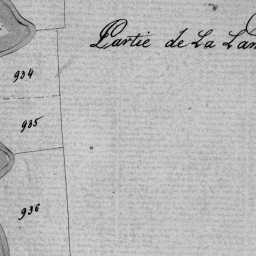 Partie de La Lan
934
935
936